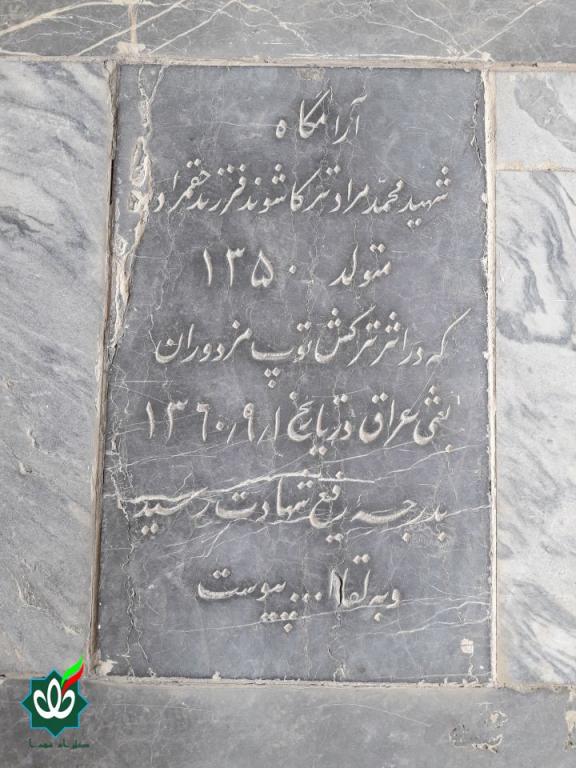 آرامگاه
شهید محمد مراد ترکاشوند فرزند حقمراد
متولد ۱۳۵۰
که در اثر ترکش توپ مزدوران
بعثی عراق در تاریخ ۱٫۹٫۱۳۶۰
بدرجه رفیع شهادت رسید
و به لقاا... پیوست